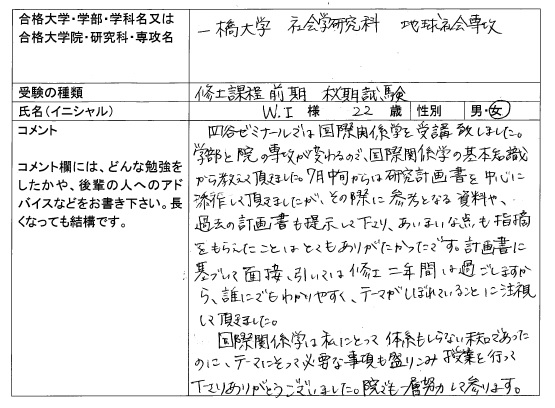 合格大学・学部・学科名又は
合格大学院・研究科・専攻名
一橋大学 社会学研究科 地球社会専攻
受験の種類
修士課程前期 秋期試験
氏名(イニシャル)
W.I 様 22 歳 性別 男・女
コメント
コメント欄には、どんな勉強を
したかや、後輩の人へのアド
バイスなどをお書き下さい。長
くなっても結構です。
四谷ゼミナールでは国際関係学を受講致しました。
学部と院の専攻が変わるので、国際関係学の基本知識
から教えて頂きました。7月中旬からは研究計画書を中心に
添作して頂きましたが、その際に参考となる資料や、
過去の計画書も提示して下さり、あいまいな点も指摘
をもらえたことはとてもありがたかったです。計画書に
基づいて面接、引いては修士二年間は過ごしますか
ら、誰にでもわかりやすく、テーマがしぼれていることに注視
して頂きました。
国際関係学は私にとって体系もしらない科目であった
のに、テーマにそって必要な事項も盛りこみ授業を行って
下さりありがとうございました。院でも一層努力して参ります。